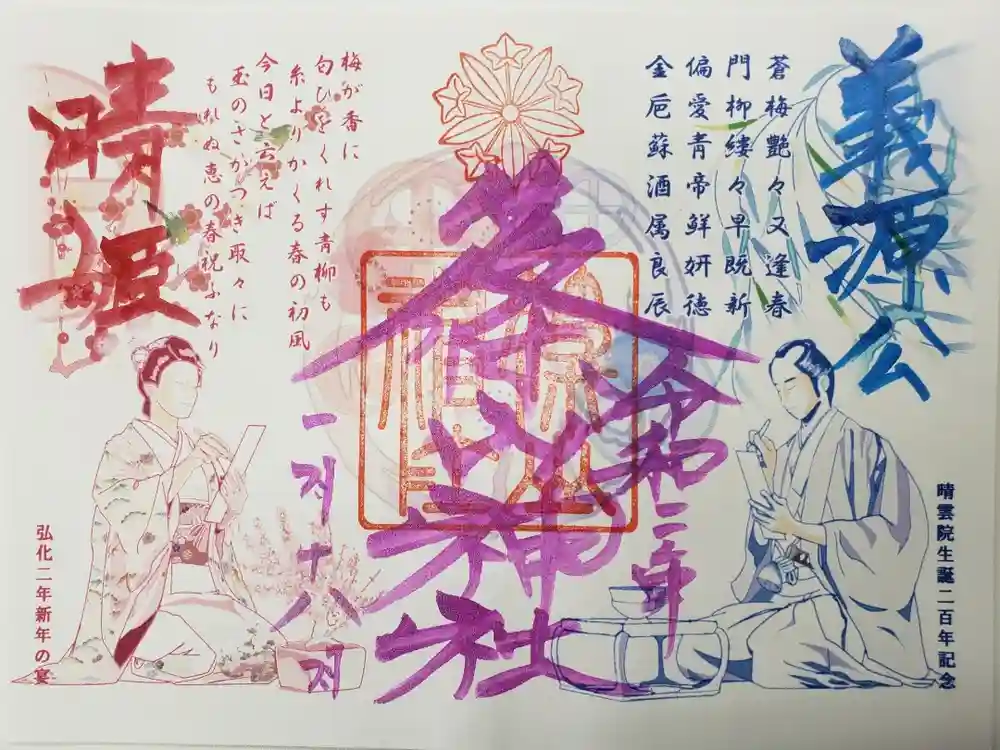 義源公
蒼梅艶々又逢春
門柳縷々早既新
偏愛青帝鮮妍徳
金卮蘇酒属良辰
晴雲院生誕二百年記念
令和二年
神社
一月十八日
梅が香に
匂ひをくれす青柳も
糸よりかくる春の初風
今日と云えば
玉のさかつき取々に
もれぬ恵の春祝ふなり
晴姫
弘化二年新年の宴